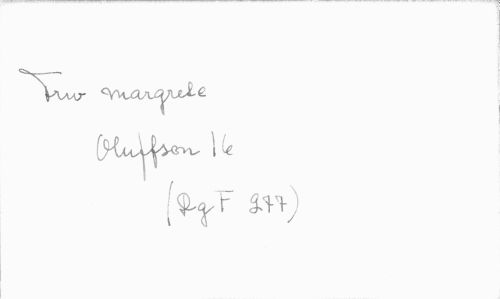 Frw margrete
Oluffson I6
(DgF 277)